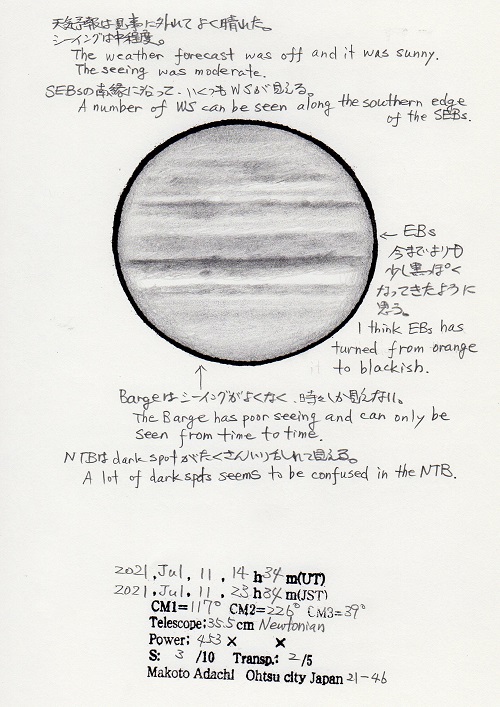 天気予報は見事に外れてよく晴れた。
シーイングは中程度。
The weather forecast was off and it was sunny.
The seeing was moderate.
SEBsの南縁に沿って、いくつもWSが見える。
A number of WS can be seen along the southern edge
of the SEBs.
← EBs
今までよりも
少し黒っぽく
なってきたように
思う。
I think EBs has
turned from orange
to blackish.
Bargeはシーイングがよくなく、時々しか見えない。
The Barge has poor seeing and can only be
seen from time to time.
NTBはdark spotがたくさん入りみだれて見える。
A lot of dark spots seems to be confused in the NTB.
2021, Jul, 11, 14 h 34 m(UT)
2021, Jul, 11, 23 h 34 m(JST)
CM1=117° CM2=226° CM3=39°
Telescope; 35.5 cm Newtonian
Power; 453 × ×
S: 3 /10 Transp.: 2 /5
Makoto Adachi Ohtsu city Japan 21-46